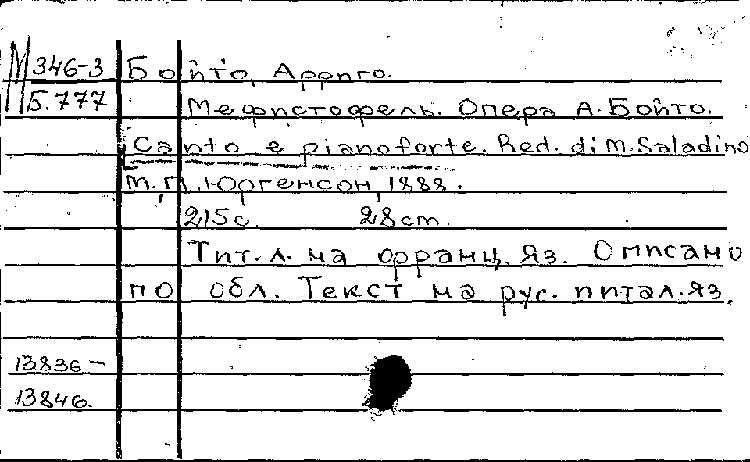 М 346-3 Бойто, Арриго.
Б.777 Мефистофель. Опера А. Бойто.
Canto e pianoforte. Red. di M. Saladino
М., П. Юргенсон, 1888.
215 с. 28 cm.
Тит. л. на франц. яз. Описано
по обл. Текст на рус. и итал. яз.
13836-
13846.